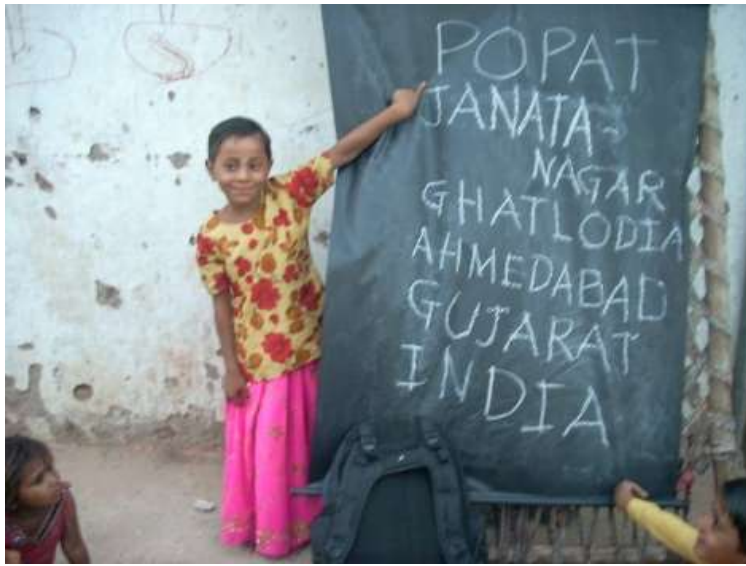 POPAT
JANATA-
NAGAR
GHATLODIA
AHMEDABAD
GUJARAT
INDIA